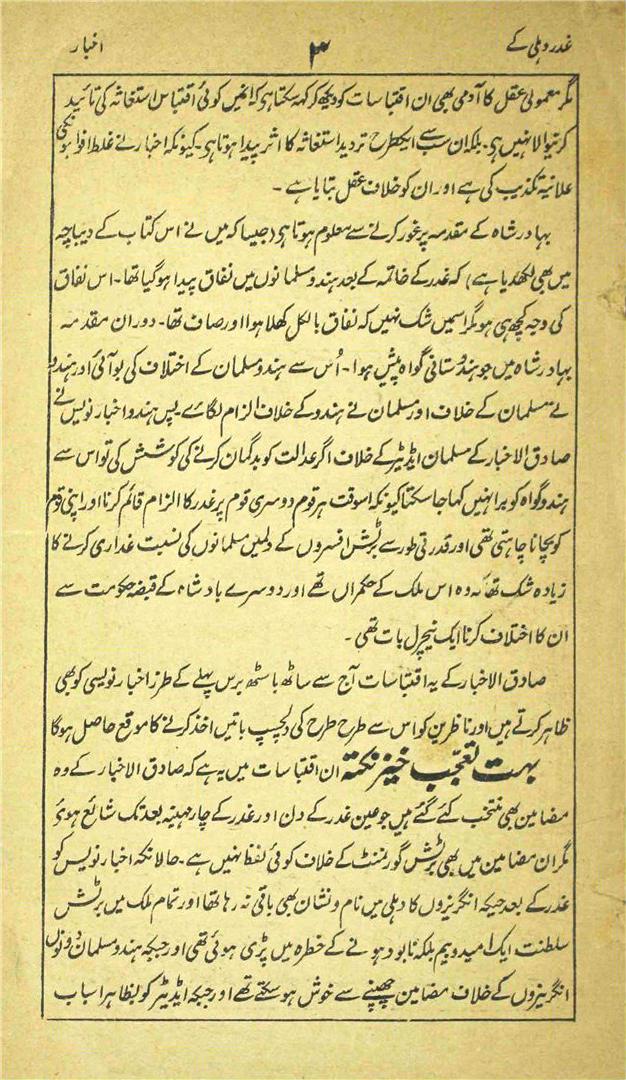 غدر دہلی کے ۳ اخبار
مگر معمولی عقل کا آدمی بھی ان اقتباسات کو دیکھ کر کہہ سکتا ہی کہ انمیں کوئی اقتباس استغاثہ کی تائید
کرنیوالا نہیں ہی۔ بلکہ ان سب سے ایکطرح تردید استغاثہ کا اثر پیدا ہوتا ہی۔ کیونکہ اخبار نے غلط افواہونکی
علانیہ تکذیب کی ہے اور ان کو خلاف عقل بتایا ہے۔
بہادر شاہ کے مقدمہ پر غور کرنے سے معلوم ہوتا ہی (جیسا کہ میں نے اس کتاب کے دیباچہ
میں بھی لکھدیا ہے) کہ غدر کے خاتمہ کے بعد ہندو مسلمانوں میں نفاق پیدا ہو گیا تھا۔ اس نفاق
کی وجہ کچھ ہی ہو مگر اسمیں شک نہیں کہ نفاق بالکل کھلا ہوا اور صاف تھا۔ دوران مقدمہ
بہادر شاہ میں جو ہندوستانی گواہ پیش ہوا۔ اُس سے ہندو مسلمان کے اختلاف کی بو آئی اور ہندو
نے مسلمان کے خلاف اور مسلمان نے ہندو کے خلاف الزام لگائے۔ پس ہندو اخبار نویس نے
صادق الاخبار کے مسلمان ایڈیٹر کے خلاف اگر عدالت کو بدگمان کرنے کی کوشش کی تو اس سے
ہندو گواہ کو برا نہیں کہا جا سکتا کیونکہ اسوقت ہر قوم دوسری قوم پر غدر کا الزام قائم کرنا اور اپنی قوم
کو بچانا چاہتی تھی اور قدرتی طور سے برٹش افسروں کے دلمیں مسلمانوں کی نسبت غداری کرنے کا
زیادہ شک تھا کہ وہ اس ملک کے حکمراں تھے اور دوسرے بادشاہ کے قبضہ حکومت سے
ان کا اختلاف کرنا ایک نیچرل بات تھی۔
صادق الاخبار کے یہ اقتباسات آج سے ساٹھ باسٹھ برس پہلے کے طرز اخبار نویسی کو بھی
ظاہر کرتے ہیں اور ناظرین کو اس سے طرح طرح کی دلچسپ باتیں اخذ کرنے کا موقع حاصل ہوگا
بہت تعجب خیز نکتہ ان اقتباسات میں یہ ہے کہ صادق الاخبار کے وہ
مضامین بھی منتخب کئے گئے ہیں جو عین غدر کے دن اور غدر کے چار مہینہ بعد تک شائع ہوئے
مگر ان مضامین میں بھی برٹش گورنمنٹ کے خلاف کوئی لفظ نہیں ہے۔ حالانکہ اخبار نویس کو
غدر کے بعد جبکہ انگریزوں کا دہلی میں نام و نشان بھی باقی نہ رہا تھا اور تمام ملک میں برٹش
سلطنت ایک امید و بیم بلکہ نابود ہونے کے خطرہ میں پڑی ہوئی تھی اور جبکہ ہندو مسلمان دونوں
انگریزوں کے خلاف مضامین چھپنے سے خوش ہو سکتے تھے اور جبکہ ایڈیٹر کو بظاہر اسباب